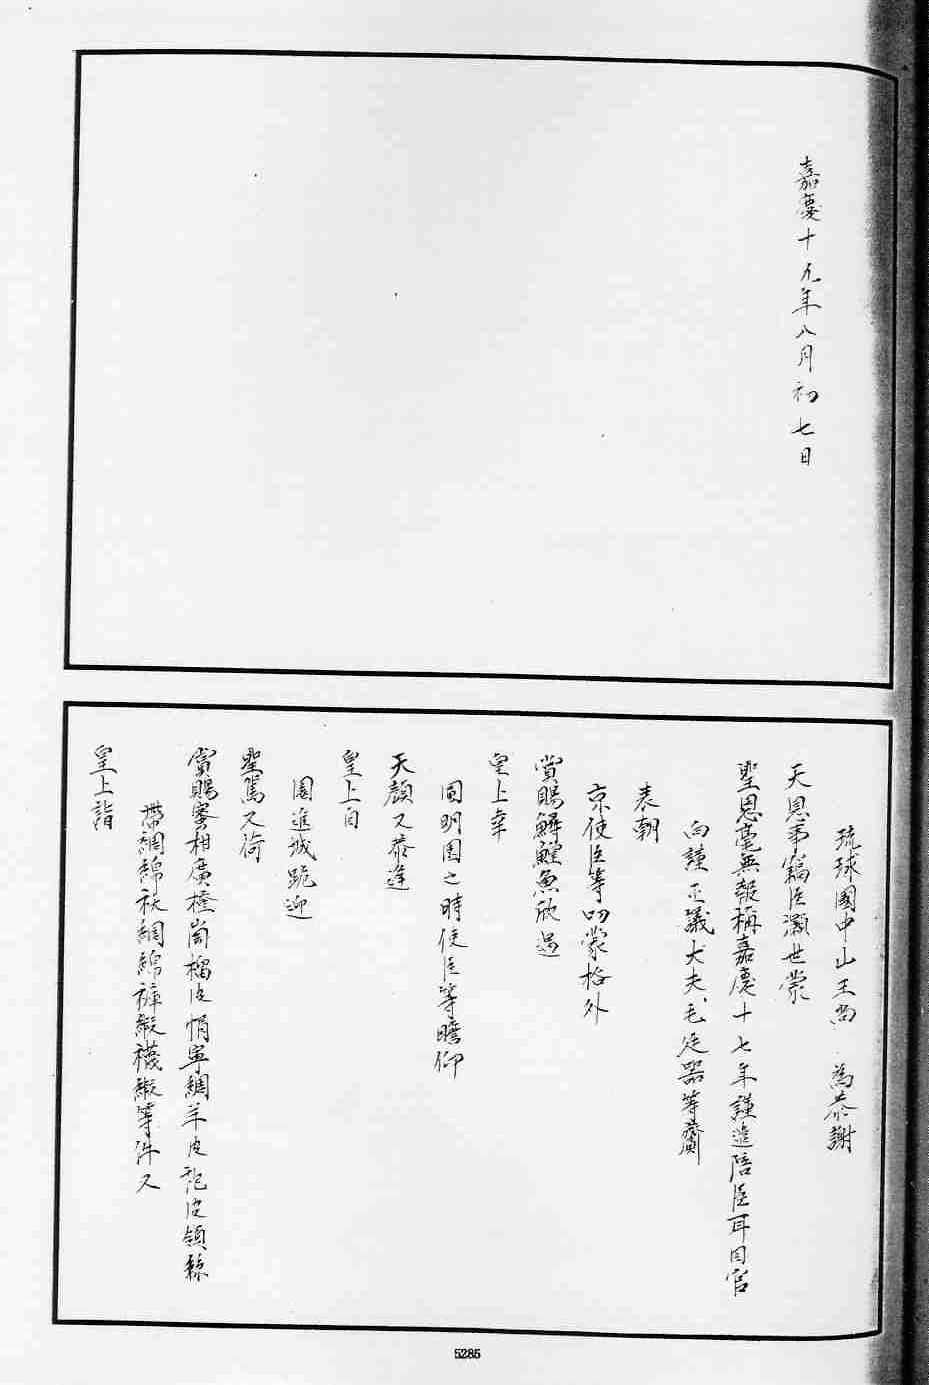 嘉慶十九年八月初七日
琉球國中山王尚 為恭謝
天恩事竊臣灝世蒙
聖恩毫無報稱嘉慶十七年謹遣陪臣耳目官
向謹正議大夫毛廷器等齎
表朝
京使臣等叨蒙格外
賞賜鱘鰉魚欣遇
皇上幸
圓明園之時使臣等瞻仰
天顏又恭逢
皇上自
園進城跪迎
聖駕又荷
賞賜蜜柑廣橙石榴皮帽寧綢羊皮袍皮領絲
帶綢綿襖綢綿褲緞襪緞等件又
皇上詣
5285